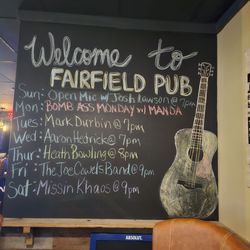 Welcome to
FAIRFIELD PUB
Sun: Open Mic w/ Josh Lawson @ 7pm
Mon: BOMB ASS MONDAY w/ MANDA
Tues: Mark Durbin @ 7pm
Wed: Aaron Hedrick @ 7pm
Thur: Heath Bowling @ 8pm
Fri: The Joe Cowels Band @ 9pm
Sat: Missin Khaos @ 9pm
ABSOLUT.